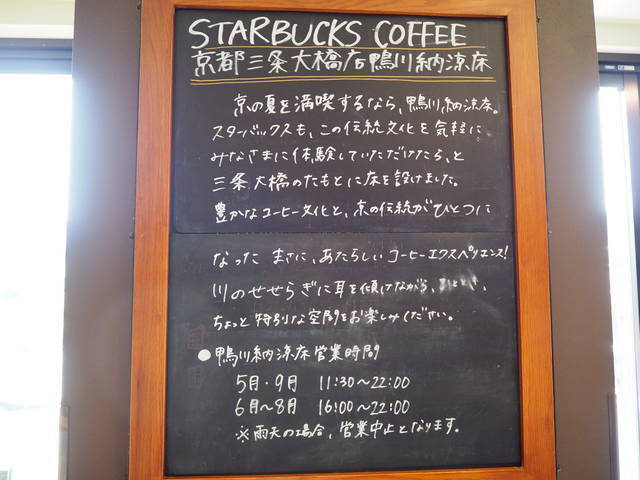 STARBUCKS COFFEE
京都三条大橋店鴨川納涼床
京の夏を満喫するなら、鴨川納涼床。
スターバックスも、この伝統文化を気軽に
みなさまに体験していただけたら、と
三条大橋のたもとに床を設けました。
豊かなコーヒー文化と、京の伝統がひとつに
なった まさに、あたらしいコーヒーエクスペリエンス!
川のせせらぎに耳を傾けながら、ひととき、
ちょっと特別な空間をお楽しみください。
●鴨川納涼床営業時間
5月・9月 11:30~22:00
6月~8月 16:00~22:00
※雨天の場合、営業中止となります。